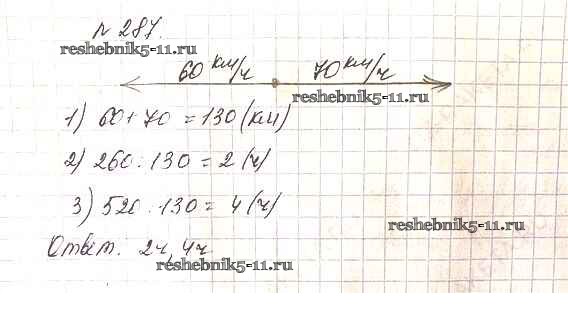 № 287.
reshebnik5-11.ru
60 км/ч 70 км/ч
reshebnik5-11.ru
1) 60+70 = 130 (км)
2) 260 : 130 = 2 (ч)
3) 520 : 130 = 4 (ч)
reshebnik5-11.ru
Ответ. 2ч, 4ч.
reshebnik5-11.ru